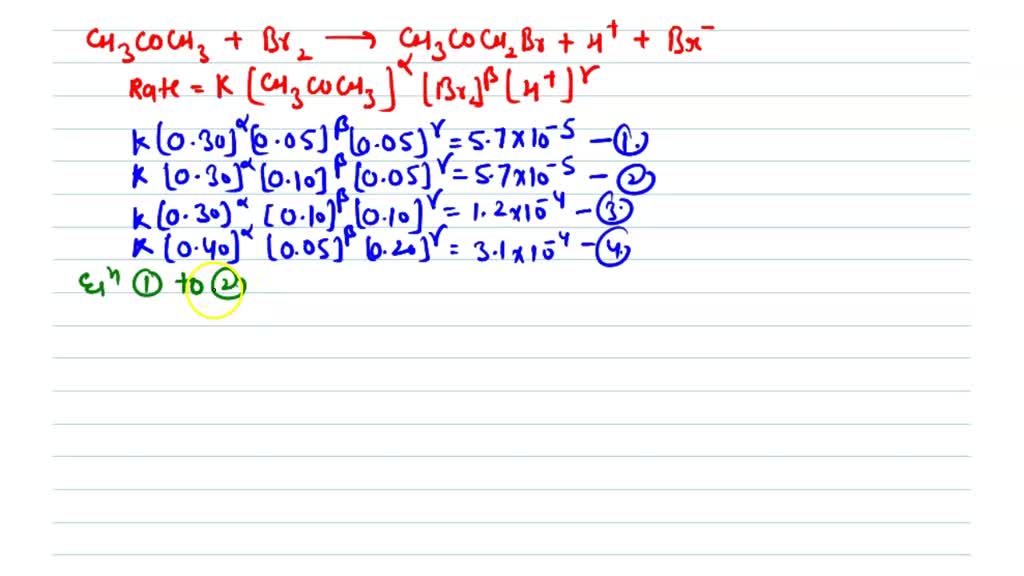 CH₃COCH₃ + Br₂ ⟶ CH₃COCH₂Br + H⁺ + Br⁻
Rate = K [CH₃COCH₃]^α [Br₂]^β [H⁺]^γ
K [0.30]^α [0.05]^β [0.05]^γ = 5.7×10⁻⁵ – ①
K [0.30]^α [0.10]^β [0.05]^γ = 5.7×10⁻⁵ – ②
K [0.30)^α [0.10]^β [0.10]^γ = 1.2×10⁻⁴ – ③
K [0.40]^α [0.05]^β [0.20]^γ = 3.1×10⁻⁴ – ④
Eqⁿ ① to ②